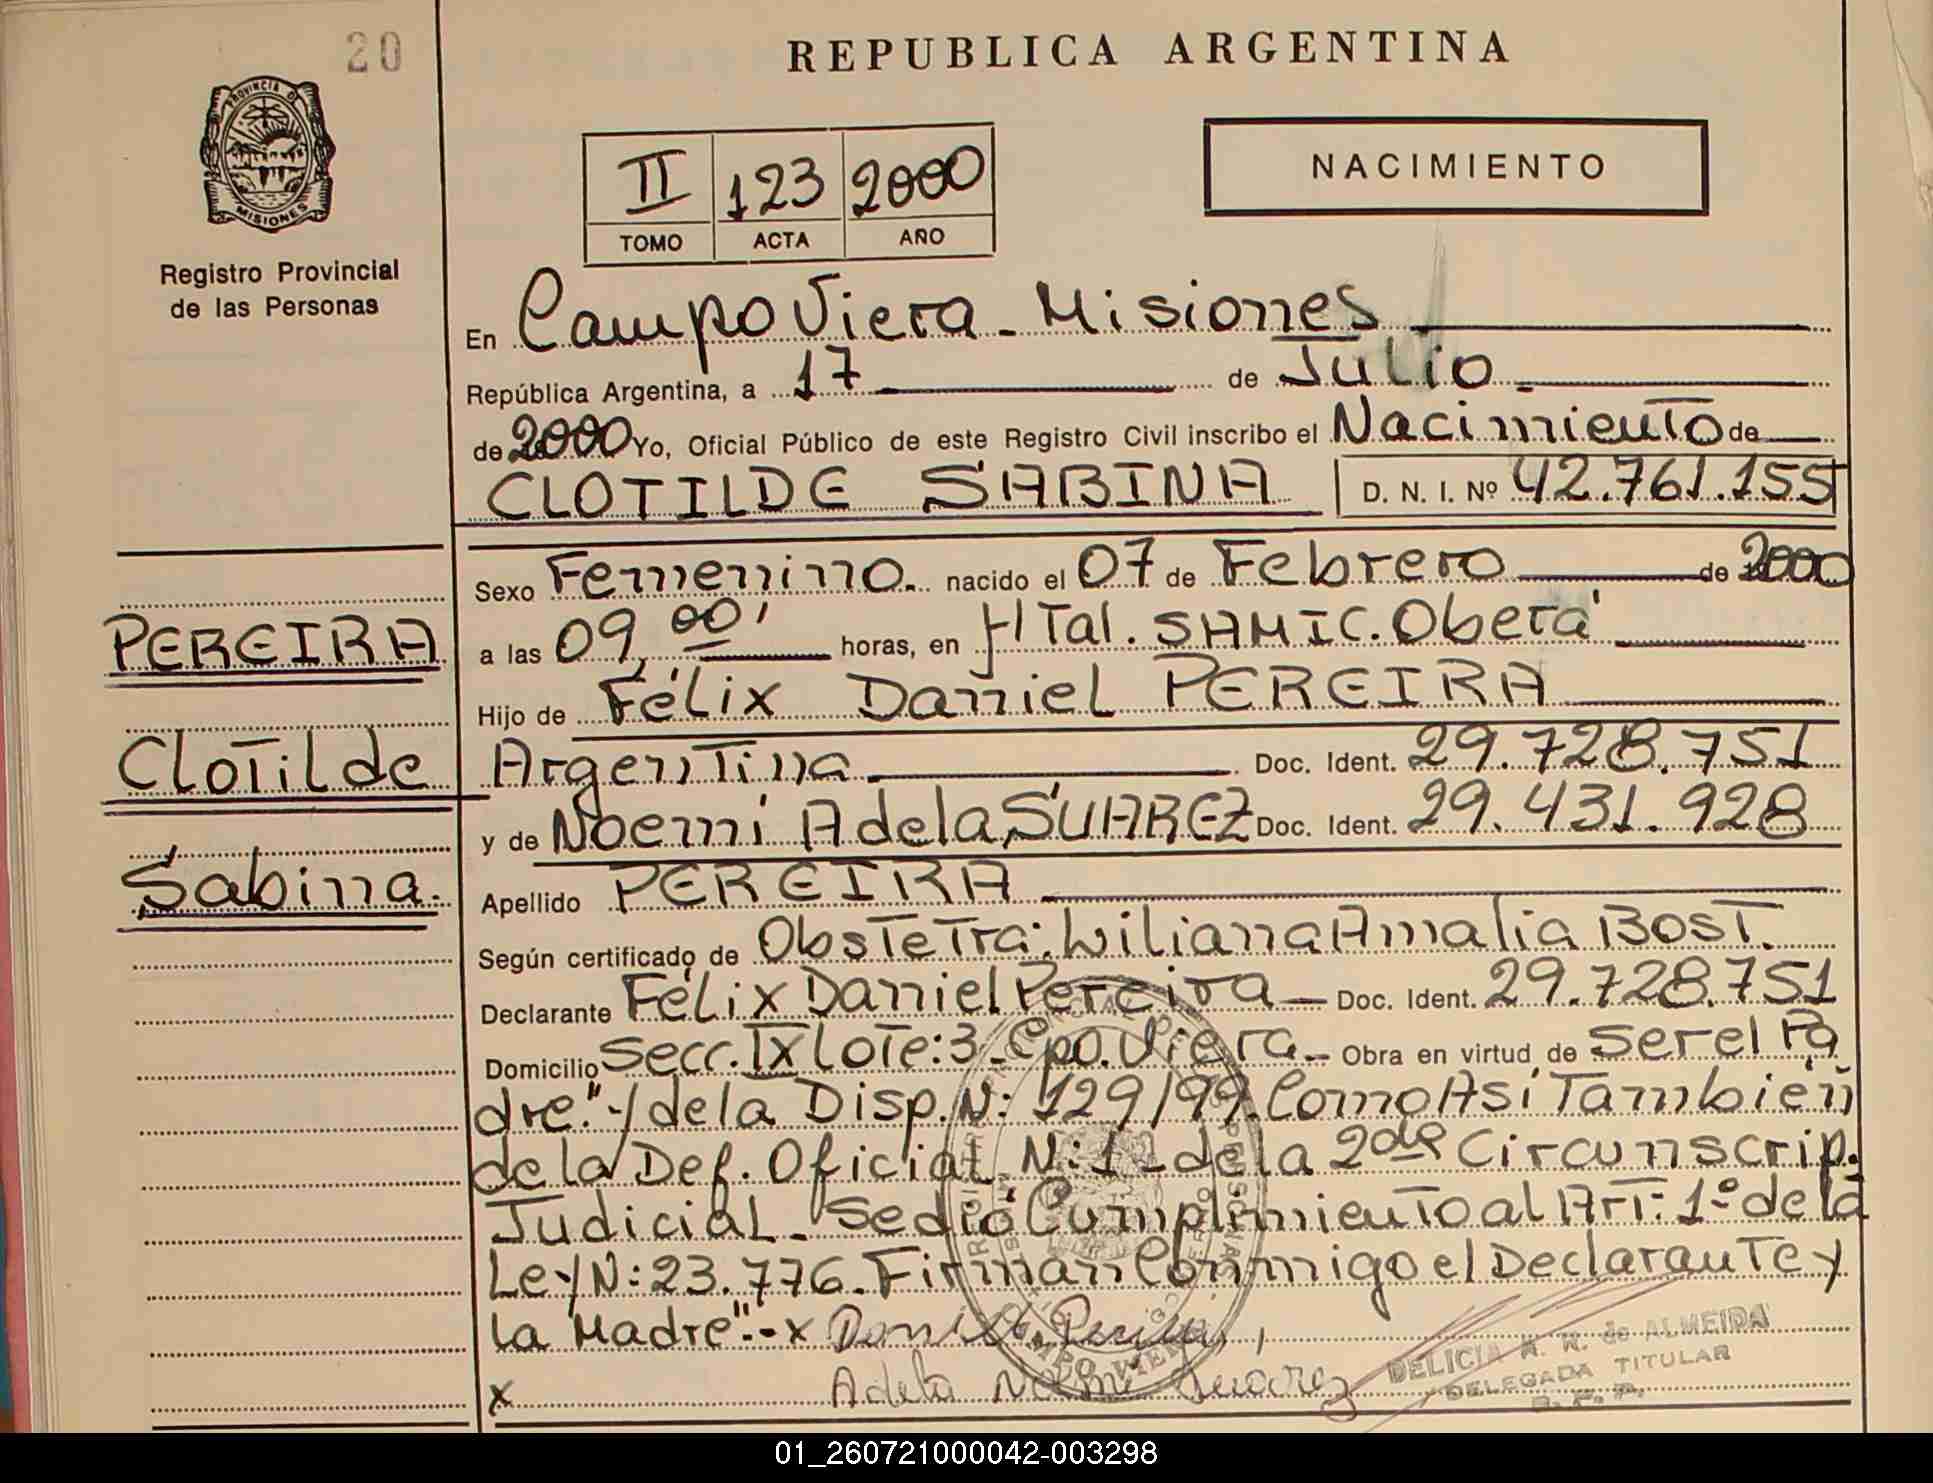 20
REPUBLICA ARGENTINA
PROVINCIA DE
MISIONES
Registro Provincial
de las Personas
II 123 2000
TOMO ACTA AÑO
NACIMIENTO
En Campo Viera - Misiones
República Argentina, a 17 de Julio
de 2000 Yo, Oficial Público de este Registro Civil inscribo el Nacimiento de
CLOTILDE SABINA D. N. I. Nº 42.761.155
Sexo Femenino. nacido el 07 de Febrero de 2000
a las 09,00' horas, en HTal. SAMIC. Oberá
Hijo de Félix Daniel PEREIRA
Argentina Doc. Ident. 29.728.751
y de Noemi Adela SUAREZ Doc. Ident. 29.431.928
Apellido PEREIRA
Según certificado de Obstetra: Wiliana Amalia BOST.
Declarante Félix Daniel Pereira Doc. Ident. 29.728.751
Domicilio Secc. IX Lote: 3 - Cpo. Viera - Obra en virtud de ser el Pa
dre"- y de la Disp. N: 129/99. Como Así También
de la Def. Oficial N: 1 - de la 2da Circunscrip.
Judicial - Se dió Cumplimiento al Art: 1º de la
Ley N: 23.776. Firman Conmigo el Declarante y
la Madre".- x Daniel Pereira
x Adela Noemi Suarez
DELICIA R. de ALMEIDA
DELEGADA TITULAR
PEREIRA
Clotilde
Sabina.
01_260721000042-003298